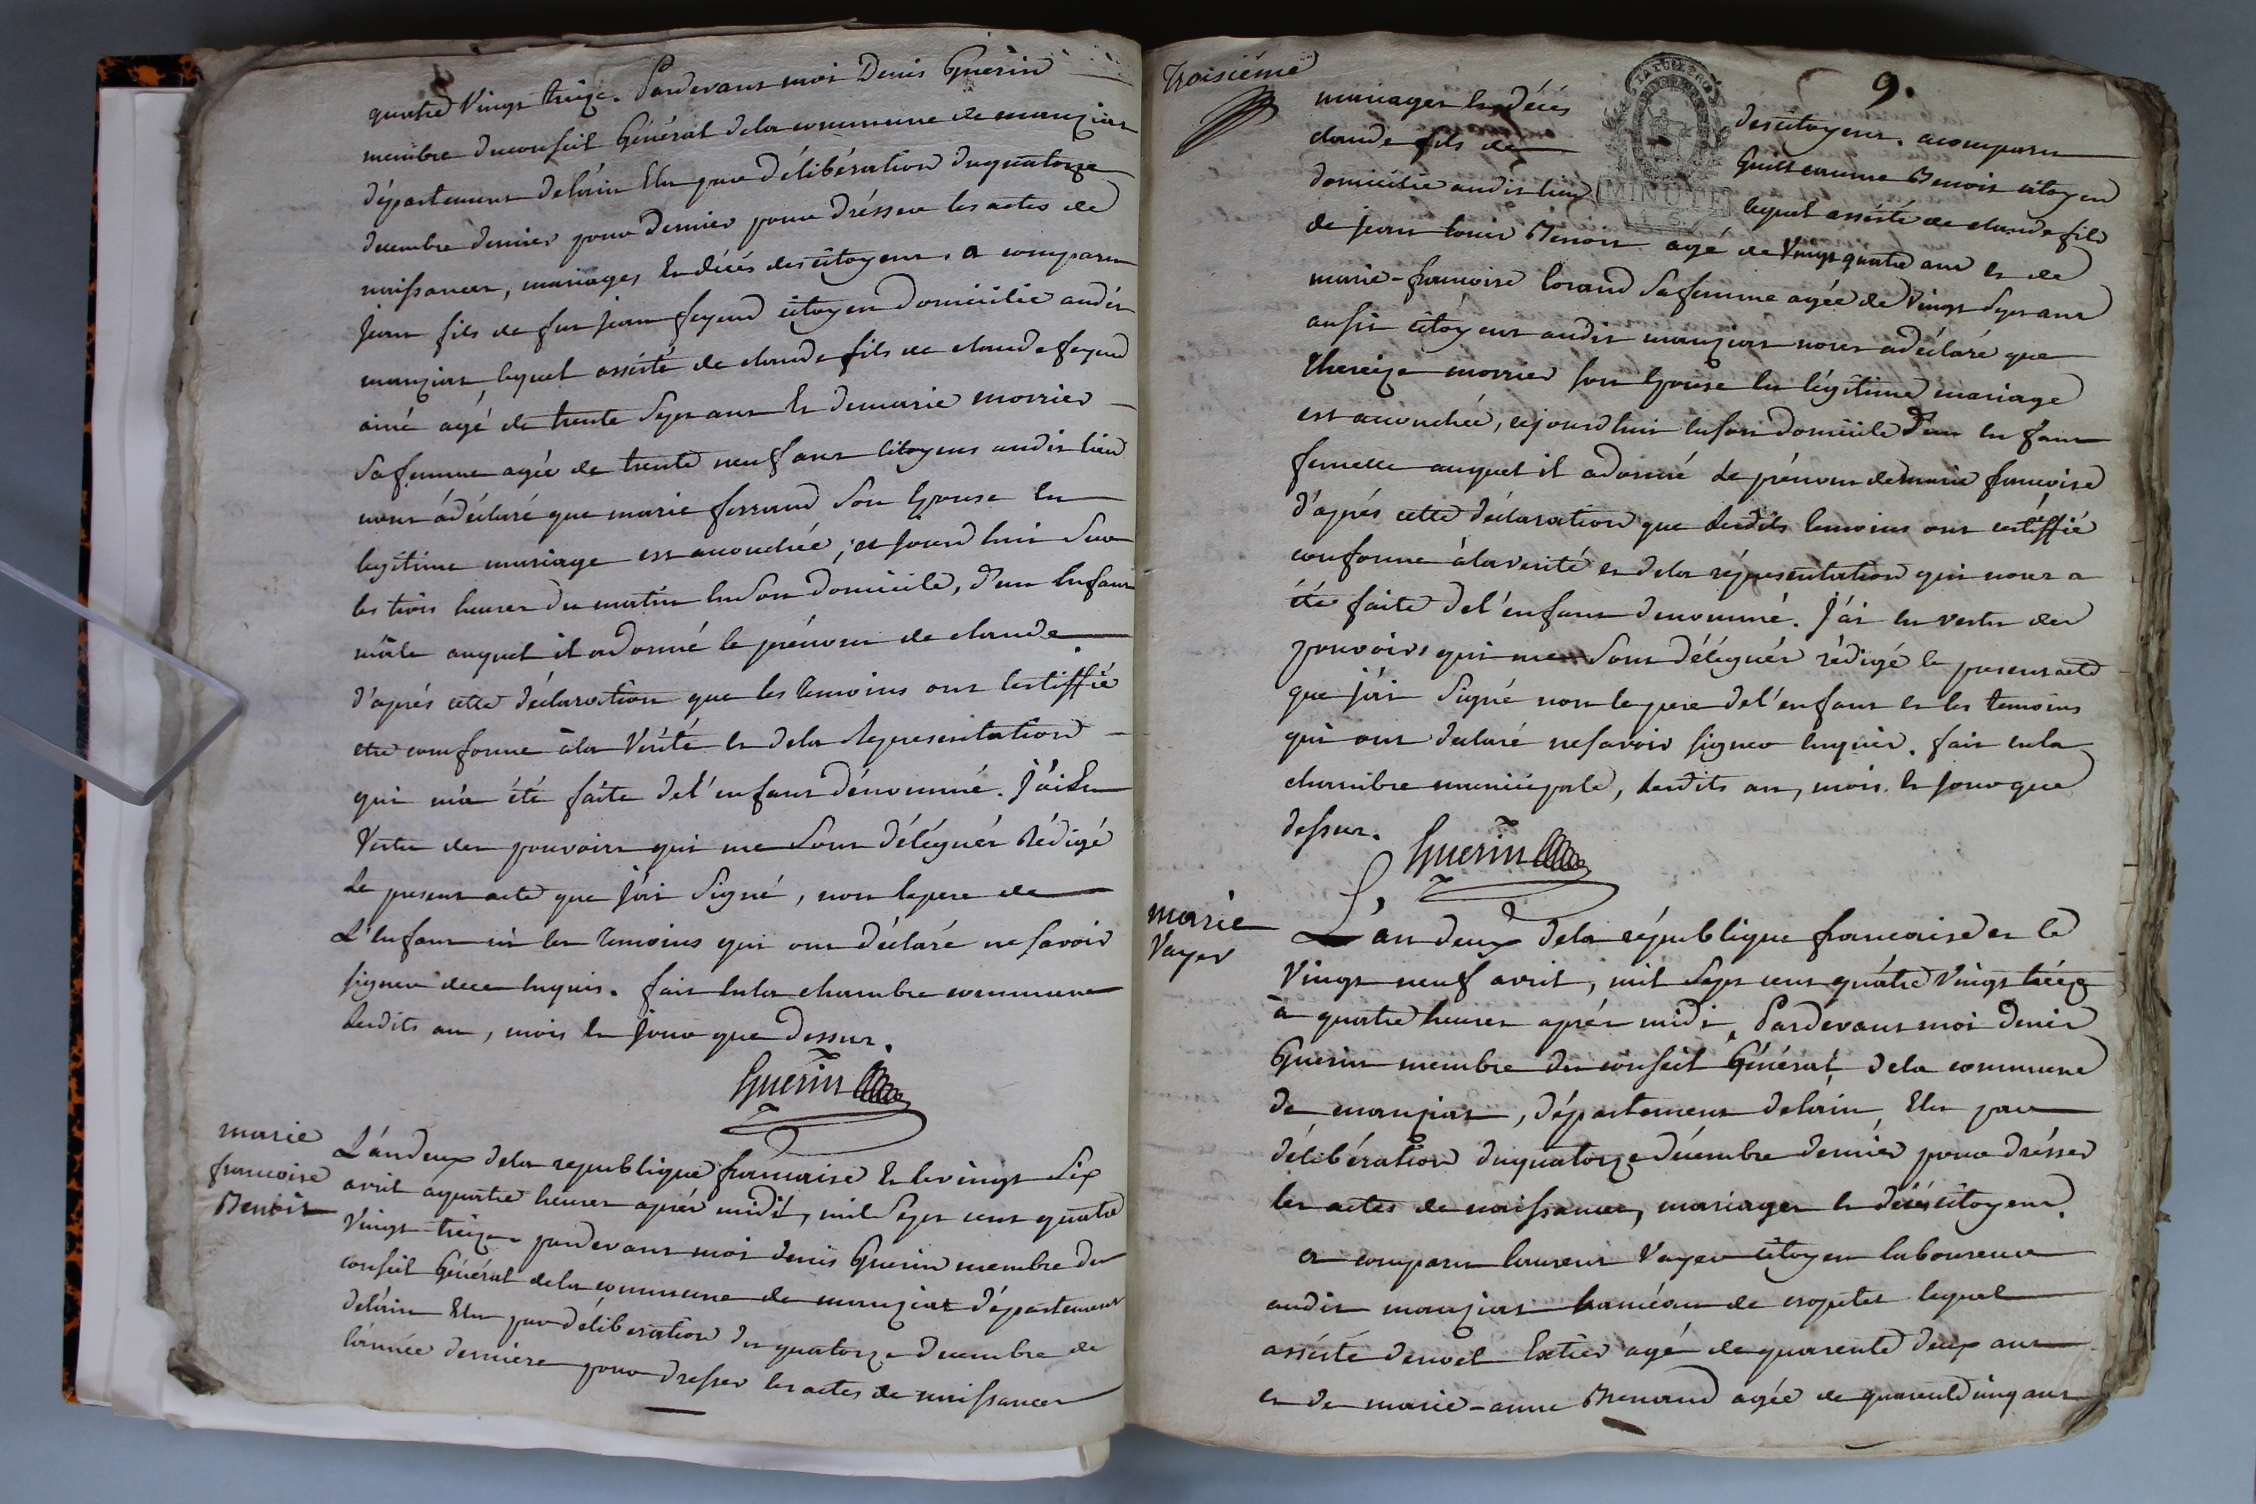 quatre Vingt treize. Pardevant moi Denis Guerin
membre du conseil Général dela commune de manziat
département delain Elu par délibération duquatorze
decembre dernier pour dernier pour drésser les actes de
naissances, mariages, En décés des citoyens, a comparu
jean fils de feu jean feyeud citoyen domicilié audit
manziat lequel assisté de claude fils de claude feyeud
ainé agé de trente Sept ans Et de marie morrier
Sa femme agée de trente neuf ans Citoyens audit lieu
nous a déclaré que marie ferrand Son Epouse En
legitime mariage est accouchée, ce jourd'hui Sur
les trois heures du matin En Son domicile, d'un Enfant
mâle auquel il a donné le prénom de claude
d'aprés cette déclaration que les temoins ont certiffié
etre conforme à la Vérité et dela Representation
qui m'a été faite de l'enfant dénommé. J'ai En
Vertu des pouvoirs qui me Sont délégués Rédigé
Le present acte que j'ai Signé, non le pere de
L'Enfant ni les temoins qui ont déclaré ne savoir
signer de ce Enquis. fait En la chambre commune
Lesdits an, mois Et jour que dessus.
Guerin
marie
francoise
Benoit
L'an deux dela republique francaise Et le vingt Six
avril a quatre heures aprés midi, mil Sept cent quatre
Vingt treize pardevant moi denis Guerin membre du
conseil Général dela commune de manziat département
delain Elu par délibération du quatorze decembre de
l'année derniere pour dresser les actes de naissances
Troisiéme
9.
MINUTE
mariages Et décés des citoyens. a comparu
claude fils de Guillaume Benoit citoyen
domicilié audit lieu lequel assisté de claude fils
de jean Louis Benoit agé de Vingt quatre ans et de
marie-francoise Lorand Sa femme agée de Vingt Sept ans
aussi citoyens audit manziat nous a déclaré que
thereze morrier son Epouse En légitime mariage
est accouchée, cejourd'hui En son domicile d'un Enfant
femelle auquel il a donné le prénom de marie francoise
d'aprés cette déclaration que lesdits temoins ont certiffié
conforme à la verité et dela réprésentation qui nous a
été faite de l'enfant denommé. J'ai En vertu des
pouvoirs qui me Sont délégués rédigé le present acte
que j'ai Signé non le pere de l'enfant et les temoins
qui ont declaré ne savoir signer Enquis. fait en la
chambre municipale, lesdits an, mois et jour que
dessus.
Guerin
marie
Vayer
L'an deux dela république francaise et le
Vingt neuf avril, mil Sept cent quatre Vingt treize
à quatre heures aprés midi, Pardevant moi denis
Guerin membre du conseil Général dela commune
de manziat, département delain Elu par
délibération du quatorze décembre dernier pour drésser
les actes de naissances, mariages et décés citoyens.
a comparu laurent Vayer citoyen laboureur
audit manziat hameau de lequel
assisté denoel agé de quarente deux ans
et de marie-anne Renaud agée de quarente cinq ans